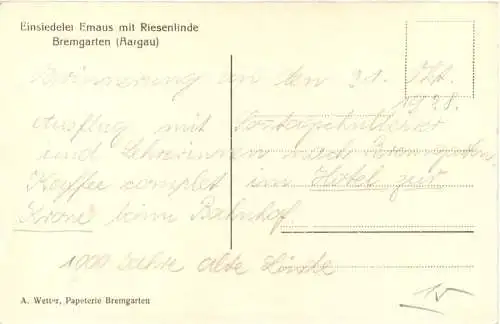 Einsiedelei Emaus mit Riesenlinde
Bremgarten (Aargau)
Erinnerung an den 21. Okt.
1928.
Ausflug mit Sonntagschullehrer
und Lehrerinnen nach Bremgarten.
Kaffee complet im Hotel zur
Krone beim Bahnhof
1000 Jahre alte Linde
A. Wetter, Papeterie Bremgarten